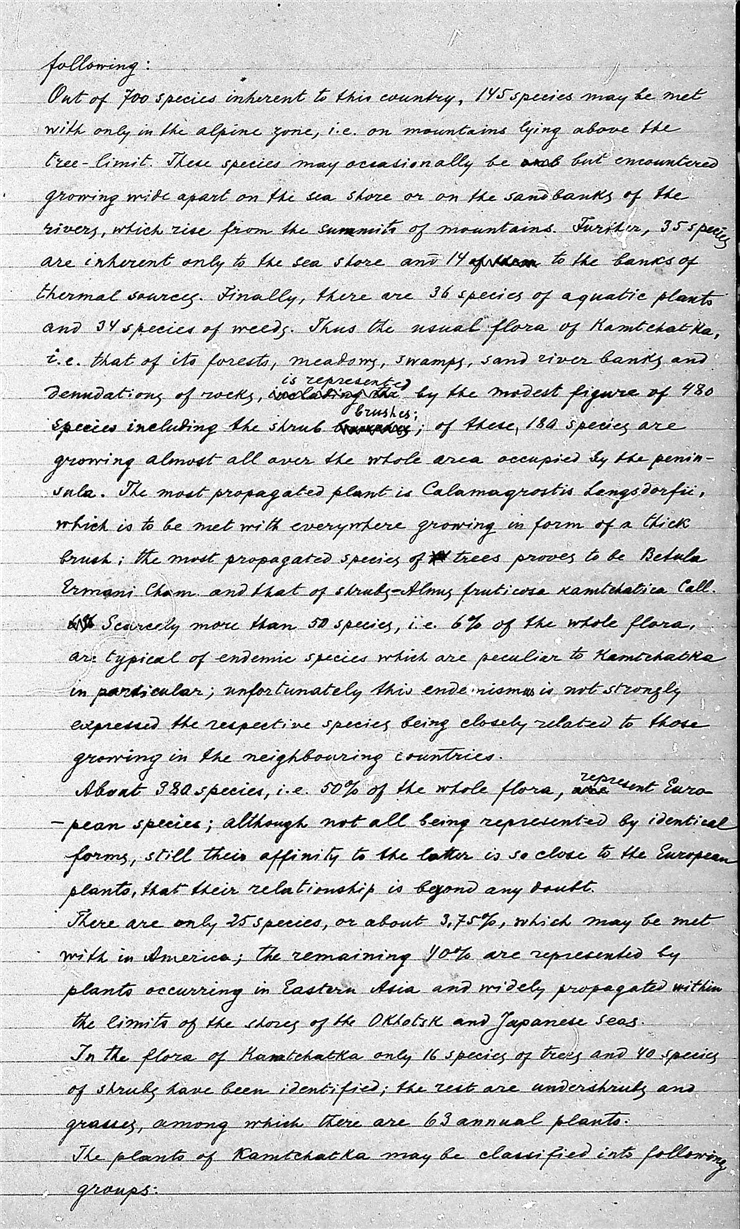 following:
Out of 700 species inherent to this country, 145 species may be met
with only in the alpine zone, i.e. on mountains lying above the
tree-limit. These species may occasionally be but encountered
growing wide apart on the sea shore or on the sandbanks of the
rivers, which rise from the summits of mountains. Further, 35 species
are inherent only to the sea shore and 14 to the banks of
thermal sources. Finally, there are 36 species of aquatic plants
and 34 species of weeds. Thus the usual flora of Kamtchatka,
i.e. that of its forests, meadows, swamps, sand river banks and
denudations of rocks, is represented by the modest figure of 480
species including the shrub brushes; of these, 180 species are
growing almost all over the whole area occupied by the penin-
sula. The most propagated plant is Calamagrostis Langsdorfii,
which is to be met with everywhere growing in form of a thick
brush; the most propagated species of trees proves to be Betula
Ermani Cham. and that of shrubs-Alnus fruticosa kamtchatica Call.
Scarcely more than 50 species, i.e. 6% of the whole flora,
are typical of endemic species which are peculiar to Kamtchatka
in particular; unfortunately this endemism is not strongly
expressed the respective species being closely related to those
growing in the neighbouring countries.
About 380 species, i.e. 50% of the whole flora, represent Euro-
-pean species; although not all being represented by identical
forms, still their affinity to the latter is so close to the European
plants, that their relationship is beyond any doubt.
There are only 25 species, or about 3,75%, which may be met
with in America; the remaining 40% are represented by
plants occurring in Eastern Asia and widely propagated within
the limits of the shores of the Okhotsk and Japanese seas.
In the flora of Kamtchatka only 16 species of trees and 40 species
of shrubs have been identified; the rest are undershrubs and
grasses, among which there are 63 annual plants.
The plants of Kamtchatka may be classified into following
groups: